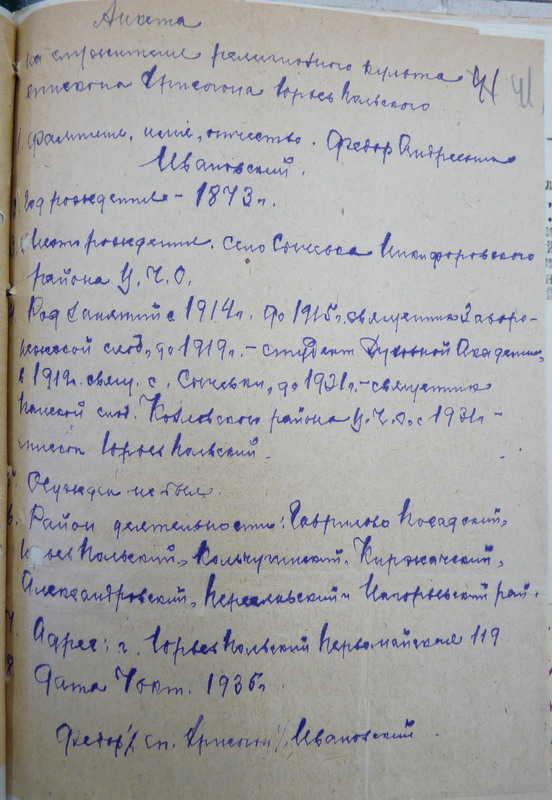 Анкета
на служителя религиозного культа 41 41
епископа Хрисогона Юрьев Польского
1. Фамилия, имя, отчество. Федор Андреевич
Ивановский.
2. Год рождения – 1873 г.
3. Место рождения. Село Сычевка Никифоровского
района Ц.Ч.О.
4. Род занятий с 1914 г. до 1915 г. священник Заворо-
нежской слоб., до 1919 г. – студент Духовной Академии,
в 1919 г. свящ. с. Сычевки, до 1931 г. – священник
Панской слоб. Козловского района Ц.Ч.О., с 1931 г –
епископ Юрьев Польский.
5. Осужден не был.
6. Район деятельности: Гаврилово Посадский,
Юрьев Польский, Кольчугинский, Киржачский,
Александровский, Переславский и Нагорьевский рай.
7. Адрес: г. Юрьев Польский Первомайская 119
8. Дата 7 окт. 1935 г.
Федор /еп. Хрисогон/ Ивановский.